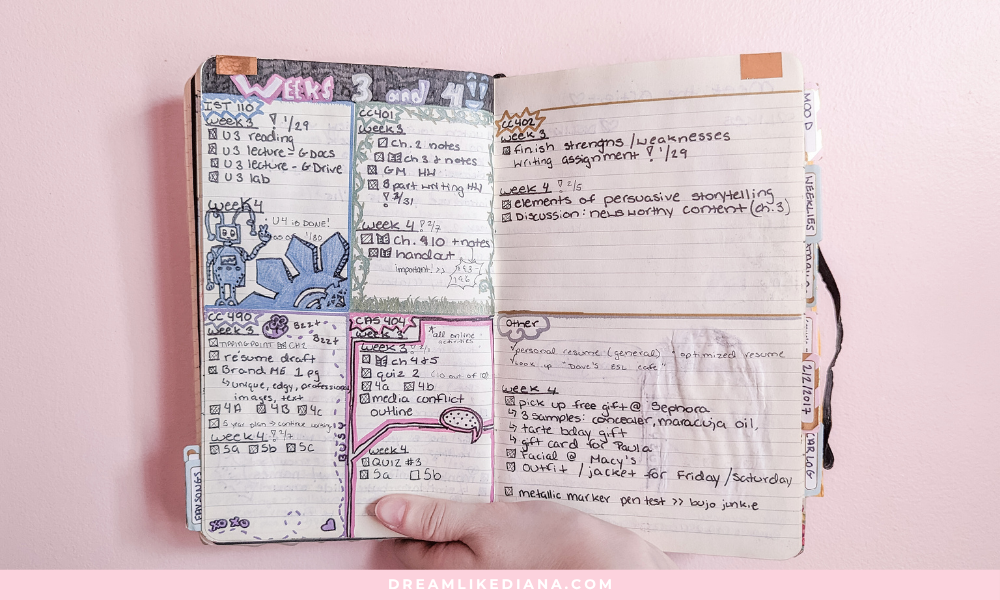 WEEKS 3 and 4
IST 110
week 3 ! 1/29
U3 reading
U3 lecture - G Docs
U3 lecture - G Drive
U3 lab
week 4
U4 is DONE!
as of 1/30
CC401
week 3
Ch. 2 notes
ch 3 + notes
GM HW
8 part writing HW
! 1/31
week 4 ! 2/7
ch. 9 10 + notes
handout
important! >> 193-
196
CC 490
week 3
Bzz+
Bzz+
TIPPING POINT CH2
résume draft
Brand ME 1 pg
↳ unique, edgy, professional
images, text
4A 4B 4C
5 year plan → continue
week 4 ! 2/7
5a 5b 5c
BUSY
XO XO
CAS 404
*all online
activities
week 3
ch 4 + 5
quiz 2 (10 out of 10)
4a 4b
media conflict
outline
week 4
QUIZ #3
5a 5b
CC402
week 3
finish strengns / weaknesses
writing assignment ! 1/29
week 4 ! 2/5
elements of persuasive storytelling
Discussion: news worthy content (ch. 3)
Other
personal resume (general) optimized resume
look up "Dave's ESL cafe"
week 4
pick up free gift @ Sephora
↳ 3 samples: concealer, maracuja oil,
↳ tarte bday gift
↳ gift card for Paula
Facial @ Macy's
outfit / jacket for Friday / Saturday
metallic marker pen test >> bujo junkie
MOOD
WEEKLIES
2/2/2017
CAR LOG
FAV SONGS
DREAMLIKEDIANA.COM